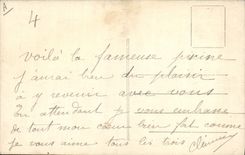 A
4
Voilà la fameuse
j'aurai bien du plaisir
à y revenir avec vous
en attendant je vous embrasse
de tout mon cœur bien fort comme
je vous aime tous les trois